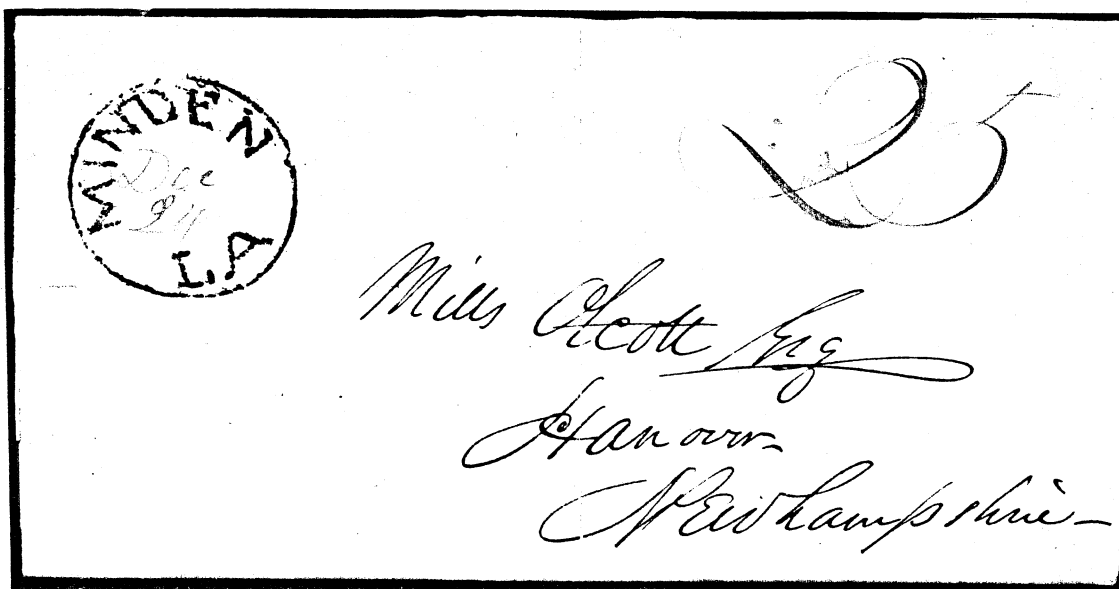 MINDEN
Dec
24
LA
25
Mills Olcott Esq
Hanover
Newhampshire